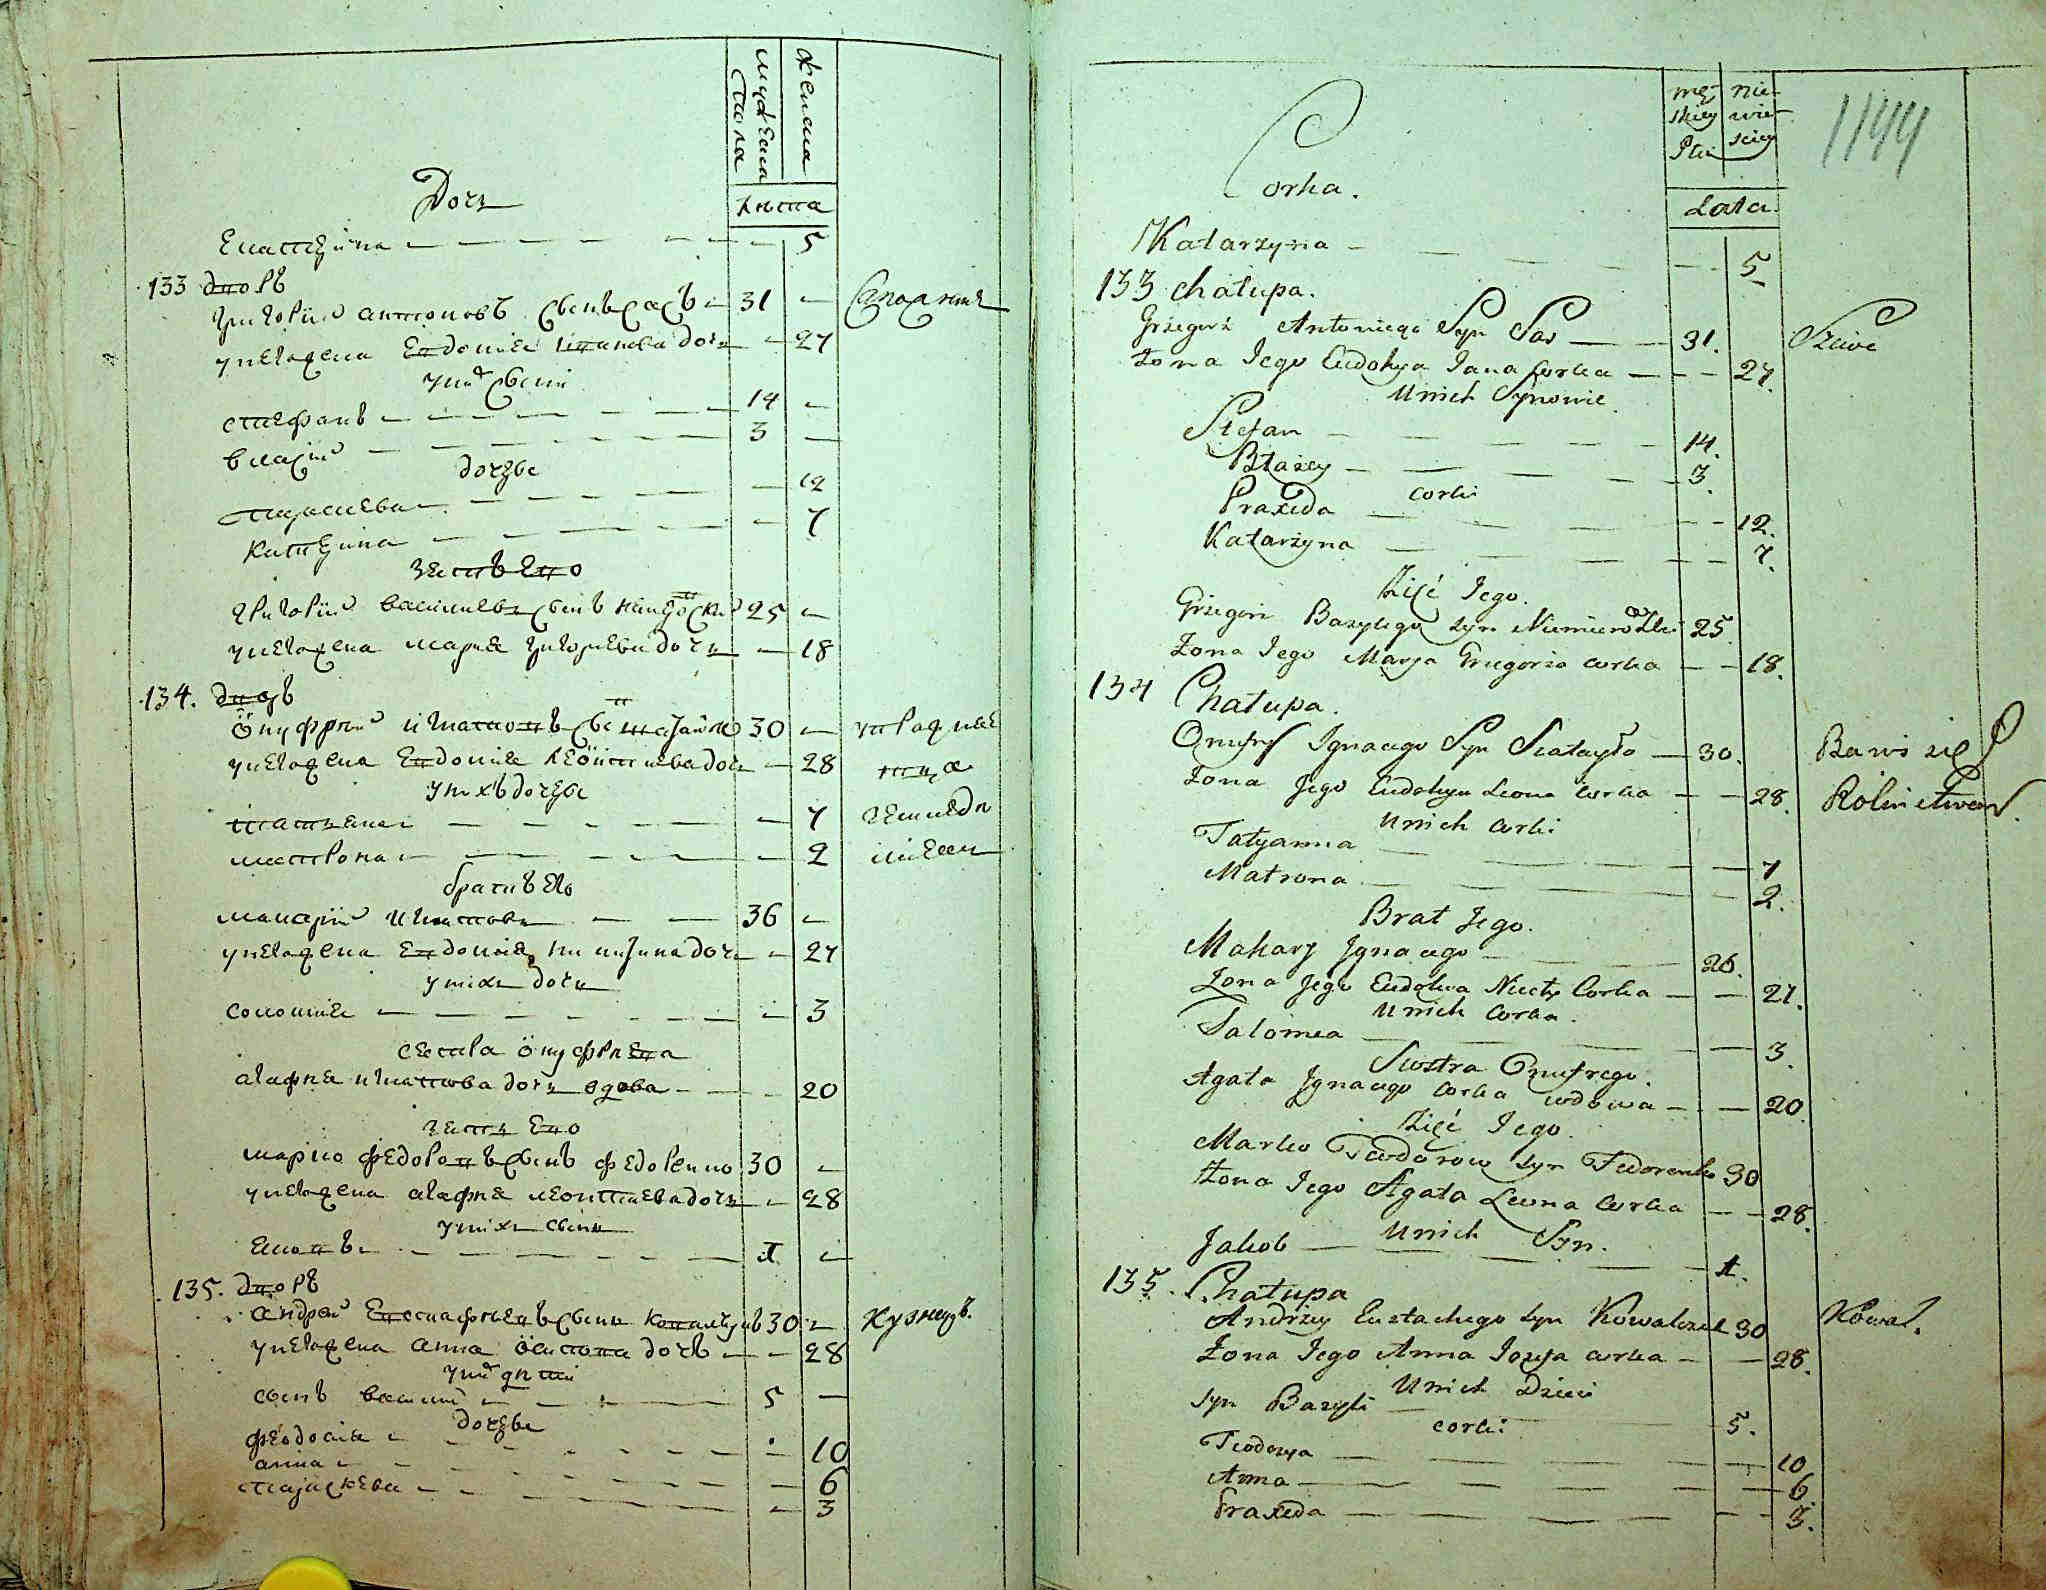 мужеска
пола
женска
лѣта
Дочь
Екатерина — 5
133 дворъ
григорий антоновъ сынъ сасъ 31 —
у него жена Евдокия иванова дочь — 27
у них сыни
стефанъ — 14 —
власий — 3 —
дочери
параскева — 12
катерина — 7
зять Его
григорий василевъ сынъ 25 —
у него жена мария григориева дочь — 18
134. дворъ
онуфрий игнатовъ сынъ 30 —
у него жена Евдокия леонтиева дочь — 28
у нихъ дочери
татияна — 7
матрона — 2
братъ Его
макарий игнатовъ 36 —
у него жена Евдокия никитина дочь — 27
у нихъ дочь
соломия — 3
сестра онуфриева
агафия игнатова дочь вдова — 20
зять Его
марко федоровъ сынъ федоренко 30 —
у него жена агафия леонтиева дочь — 28
у нихъ сынъ
яковъ — 1 —
135. дворъ
андрей Евстафиевъ сынъ ковальчукъ 30 — кузнецъ
у него жена анна осипова дочь — 28
у них дѣти
сынъ василий 5 —
дочери
феодосия — 10
анна — 6
параскева — 3
męskiey
Płci
niewiesciey
1144
Lata.
Corka.
Katarzyna — 5
133 Chałupa.
Grzegorz Antoniego Syn Sas — 31. Szewc
Żona Jego Eudokya Jana Corka — 27.
U nich Synowie.
Stefan — 14.
Błażey — 3.
corki
Praxeda — 12.
Katarzyna — 7.
Zięć Jego.
Grzegorz Bazylego syn 25
Żona Jego Marya Grzegorza corka — 18.
134 Chałupa.
Onufry Ignacego Syn 30. Bawi się
Żona Jego Eudokya Leona Corka — 28. Rolnictwem.
U nich Corki
Tatyanna — 7
Matrona — 2.
Brat Jego.
Makary Ignacego — 26.
Żona Jego Eudokia Nikity Corka — 27.
U nich Corka.
Salomea — 3.
Siostra Onufrego.
Agata Ignacego corka wdowa — 20
Zięć Jego.
Marko Teodorow syn Fedorenko 30
Żona Jego Agata Leona Corka — 28.
U nich Syn.
Jakob — 1.
135. Chałupa
Andrzey Eustachego syn Kowalczuk 30 Kowal.
Żona Jego Anna Jozefa corka — 28.
U nich Dzieci
syn Bazyli — 5.
corki
Teodozya — 10
Anna — 6
Praxeda — 3.